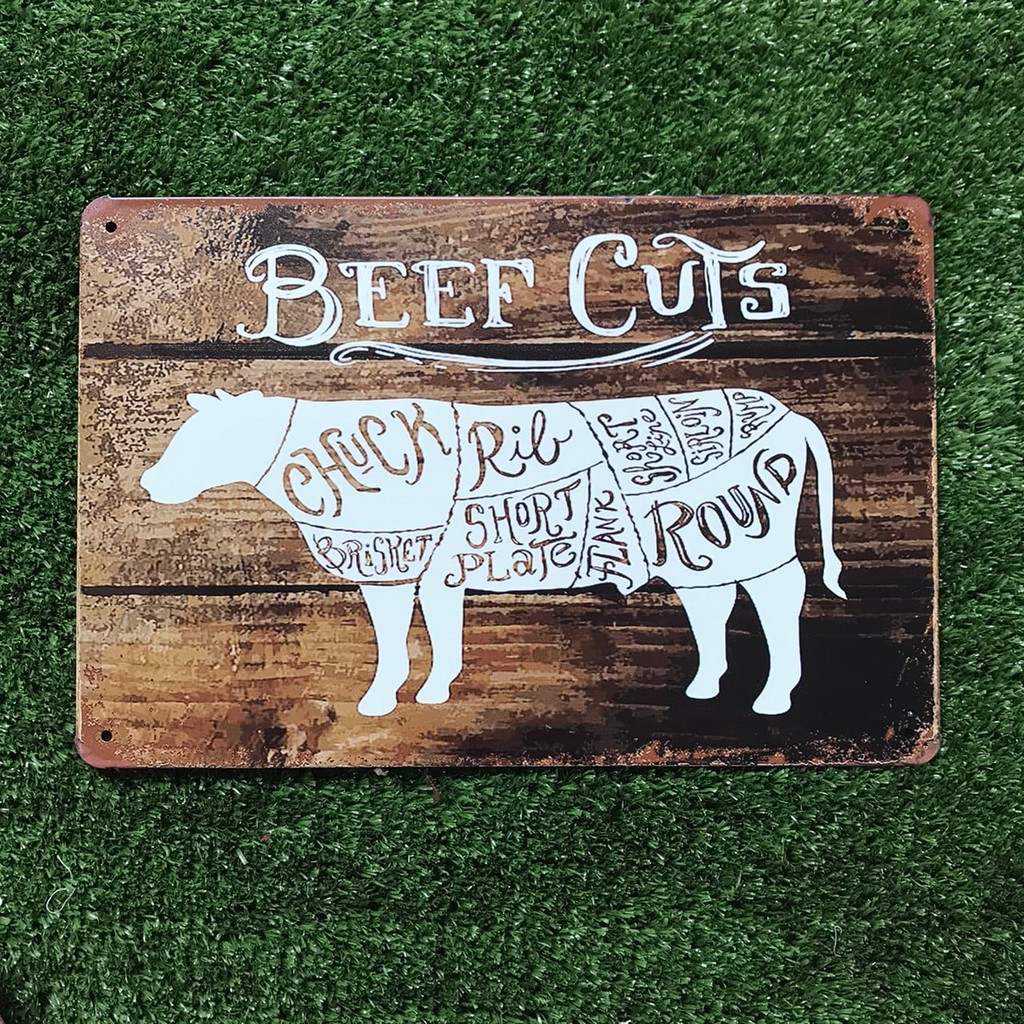 BEEF CUTS
CHUCK
Rib
SHORT
Loine
SIRLOIN
RUMP
BRISKET
SHORT
PLATE
FLANK
ROUND